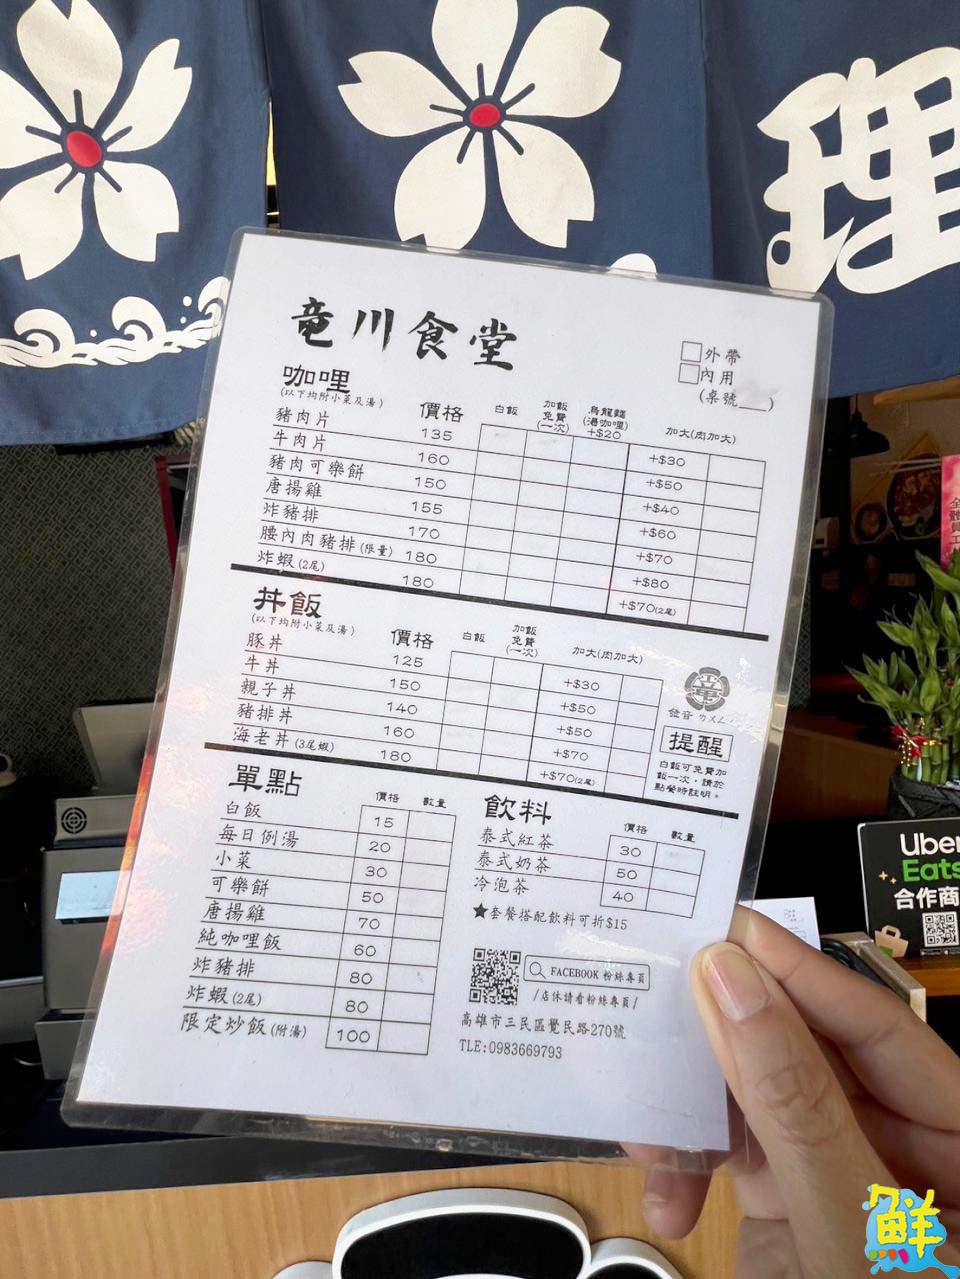 理
竜川食堂
外帶
內用
(桌號__)
咖哩
(以下均附小菜及湯)
價格 白飯 加飯免費(一次) 烏龍麵(湯咖哩)+$20 加大(肉加大)
豬肉片 135 +$30
牛肉片 160 +$50
豬肉可樂餅 150 +$40
唐揚雞 155 +$60
炸豬排 170 +$70
腰內肉豬排(限量) 180 +$80
炸蝦(2尾) 180 +$70(2尾)
丼飯
(以下均附小菜及湯)
價格 白飯 加飯免費(一次) 加大(肉加大)
豚丼 125 +$30
牛丼 150 +$50
親子丼 140 +$50
豬排丼 160 +$70
海老丼(3尾蝦) 180 +$70(2尾)
發音ㄉㄨㄥ
提醒
白飯可免費加
飯一次,請於
點餐時註明。
單點
價格 數量
白飯 15
每日例湯 20
小菜 30
可樂餅 50
唐揚雞 70
純咖哩飯 60
炸豬排 80
炸蝦(2尾) 80
限定炒飯(附湯) 100
飲料
價格 數量
泰式紅茶 30
泰式奶茶 50
冷泡茶 40
★套餐搭配飲料可折$15
FACEBOOK 粉絲專頁
/店休請看粉絲專頁/
高雄市三民區覺民路270號
TLE:0983669793
Uber
Eats
合作商
鮮